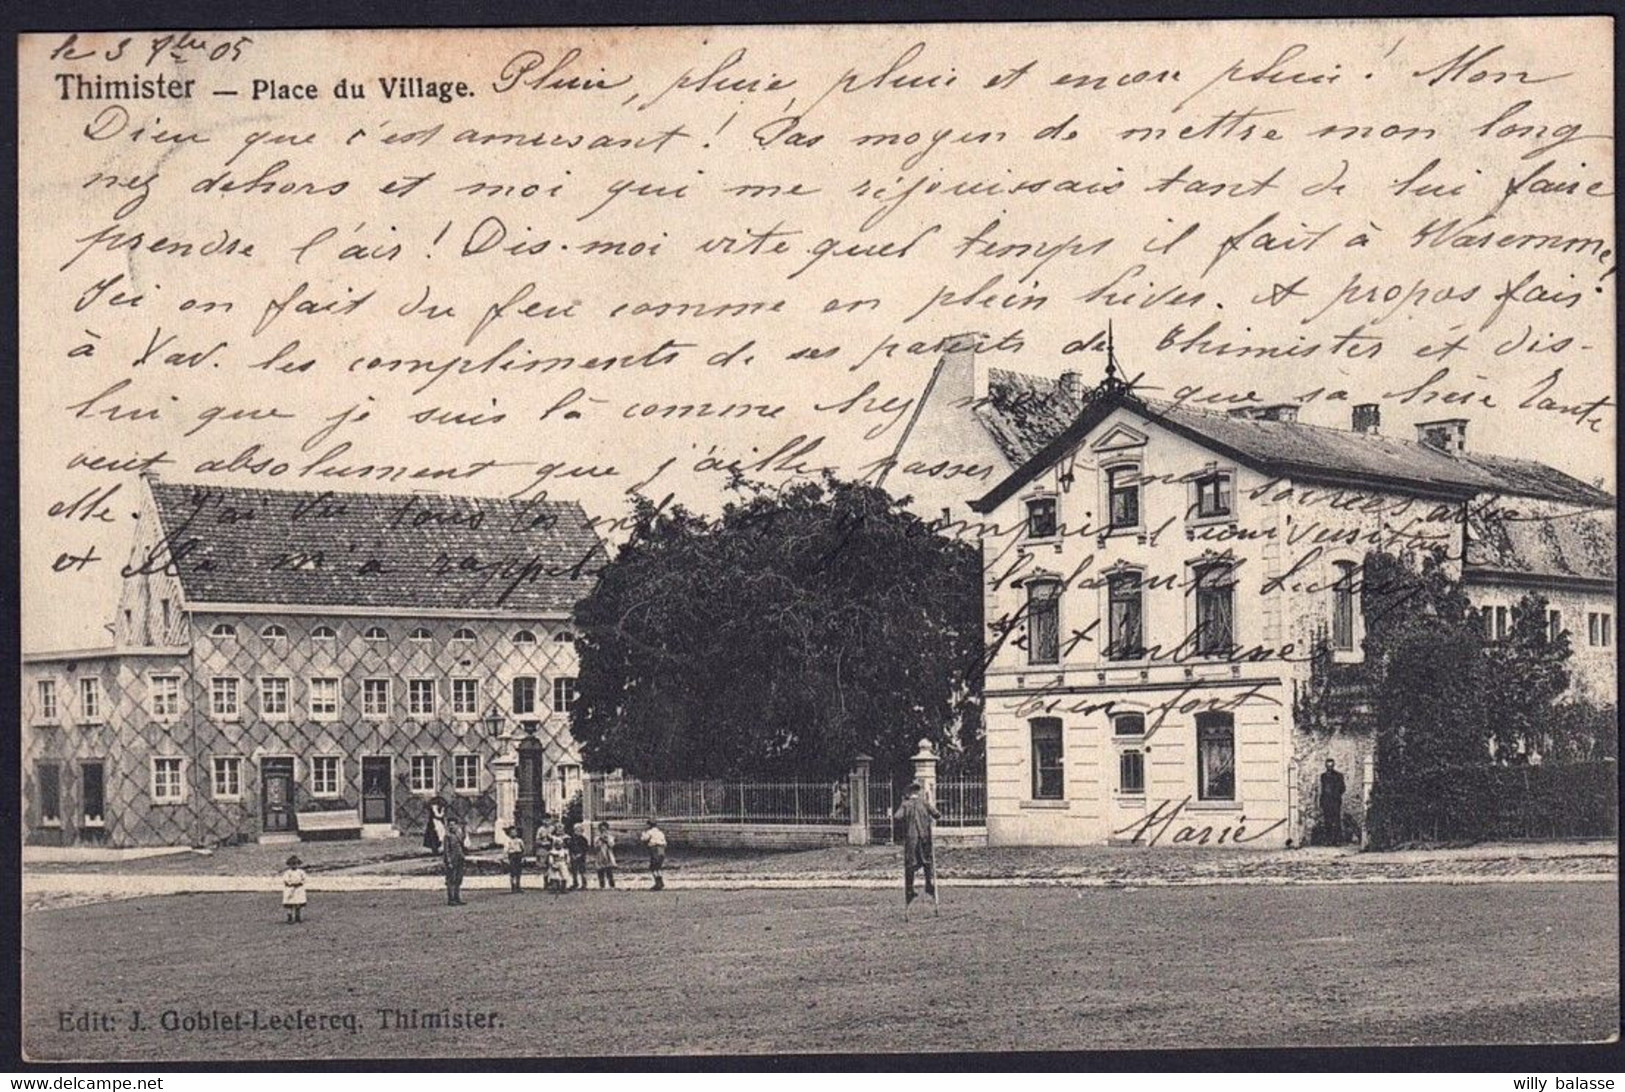 le 3 7bre 05
Thimister — Place du Village.
Pluie, pluie, pluie et encore pluie! Mon
Dieu que c'est amusant! Pas moyen de mettre mon long
nez dehors et moi qui me réjouissais tant de lui faire
prendre l'air! Dis-moi vite quel temps il fait à Waremme!
Ici on fait du feu comme en plein hiver. A propos fais
à Xav. les compliments de ses parents de Thimister et dis-
lui que je suis là comme chez moi et que sa chère Tante
veut absolument que j'aille passer mes soirées avec
elle. J'ai vu tous les enfants y compris l'universitaire
et cela m'a rappelé la famille
Je t'embrasse
bien fort
Marie
Edit: J. Goblet-Leclercq, Thimister.
willy balasse